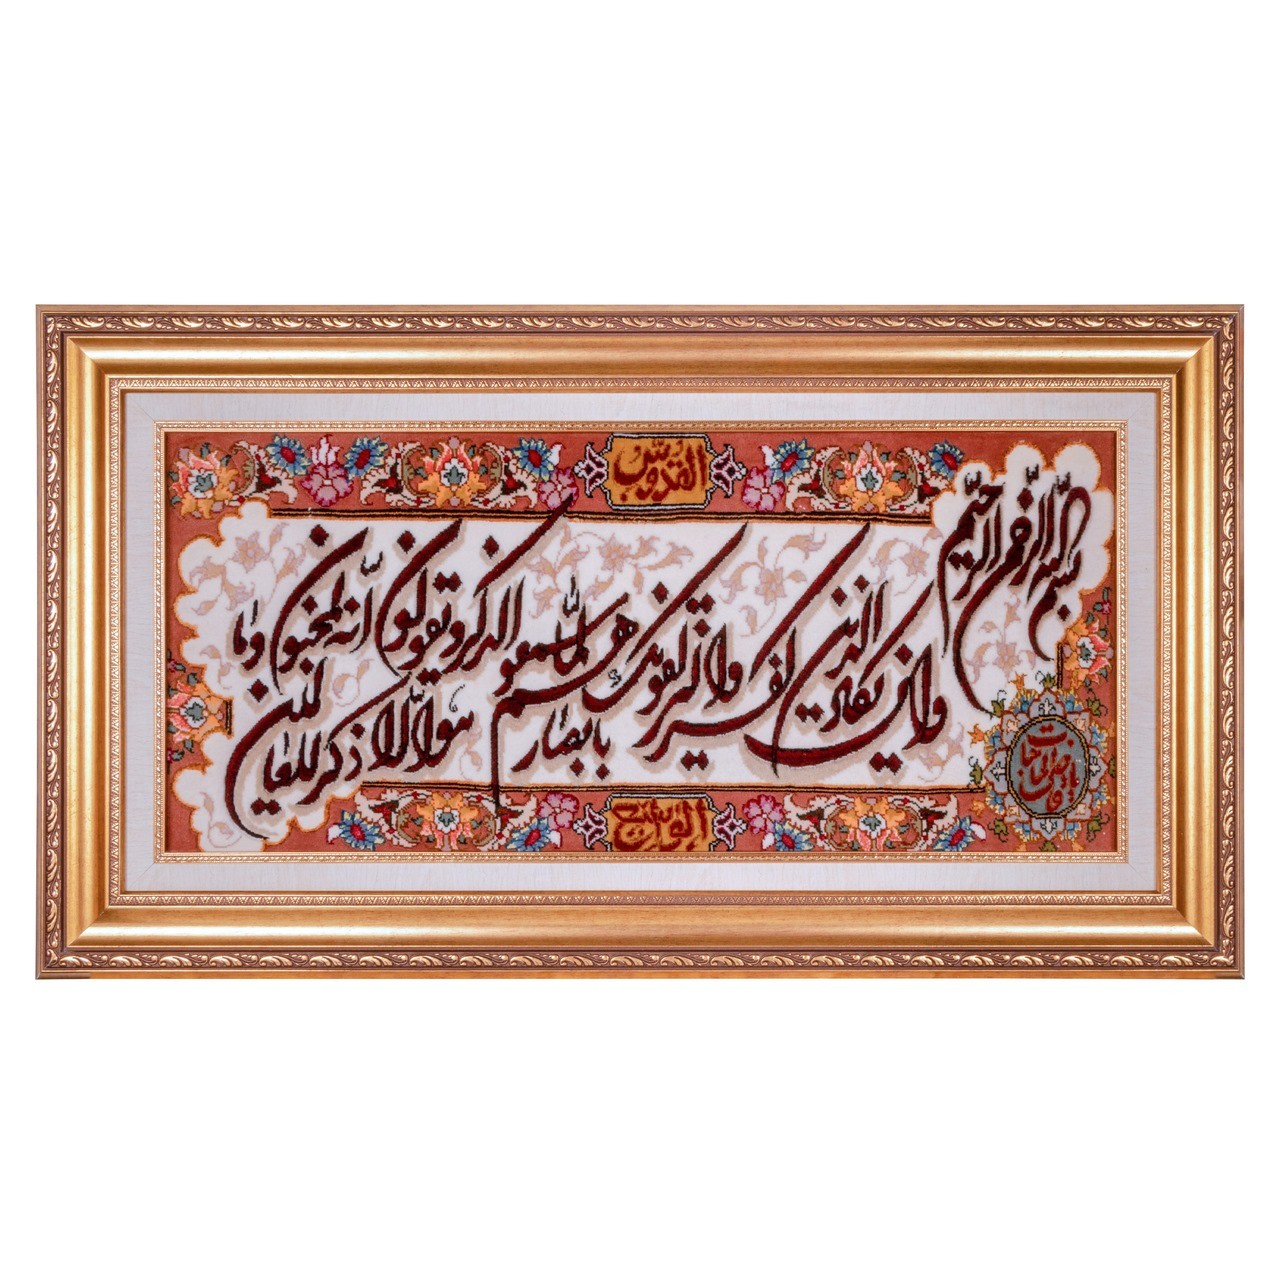 القدوس
بسم الله الرحمن الرحیم
وان یکاد الذین کفروا لیزلقونک بابصارهم لما سمعوا الذکر و یقولون انه لمجنون وما هو الا ذکر للعالمین
یا قاضی الحاجات